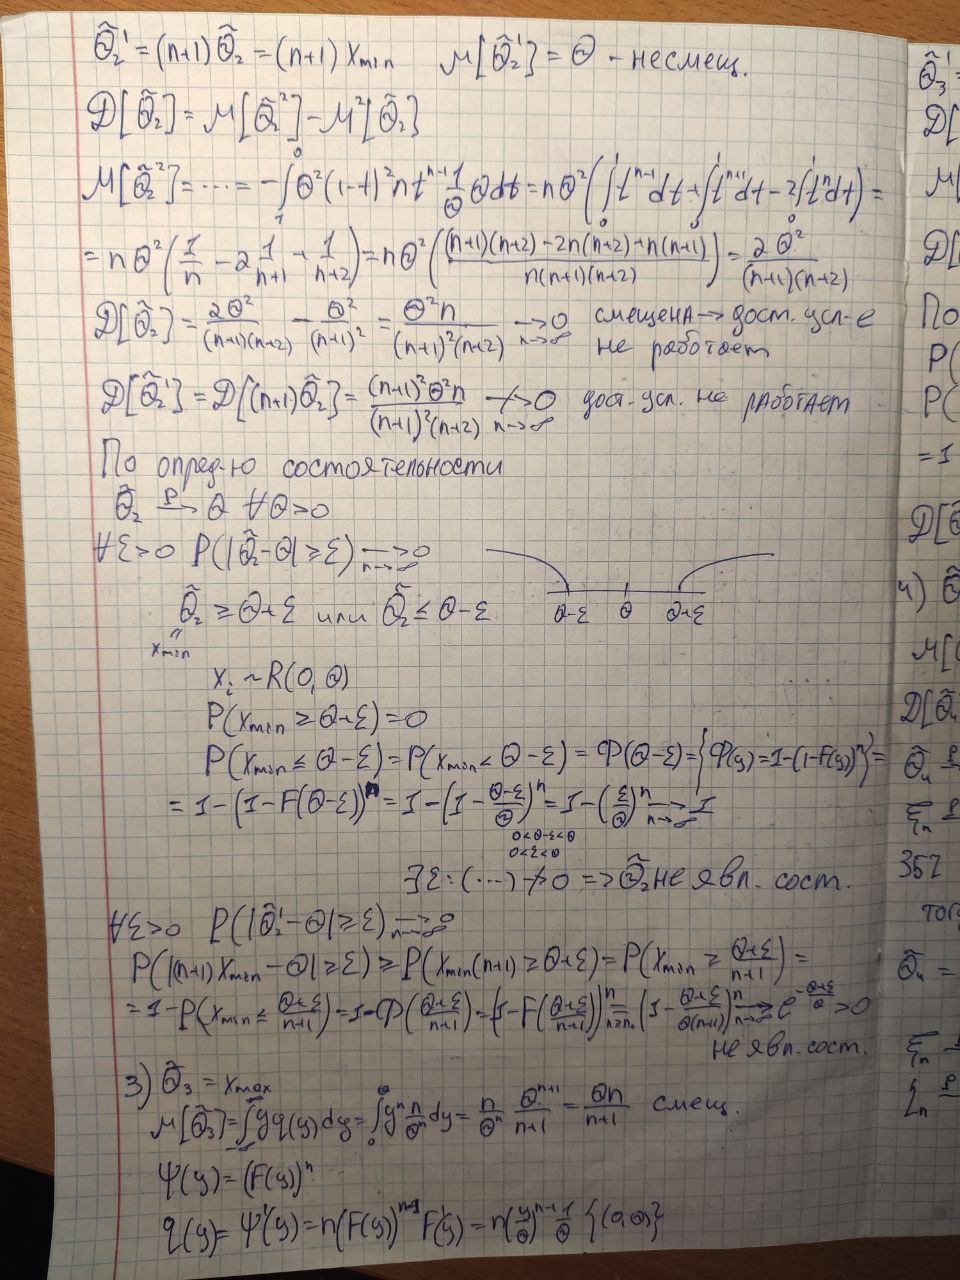 Θ̃₂' = (n+1) Θ̃₂ = (n+1) x_min   M[Θ̃₂'] = Θ - несмещ.
D[Θ̃₂] = M[Θ̃₂²] - M²[Θ̃₂]
M[Θ̃₂²] = ... = -∫₁⁰ Θ²(1-t)² n tⁿ⁻¹ 1/Θ Θ dt = nΘ² (∫₀¹ tⁿ⁻¹ dt + ∫₀¹ tⁿ⁺¹ dt - 2∫₀¹ tⁿ dt) =
= nΘ² (1/n - 2 1/(n+1) + 1/(n+2)) = nΘ² (((n+1)(n+2) - 2n(n+2) + n(n+1))/(n(n+1)(n+2))) = 2Θ²/((n+1)(n+2))
D[Θ̃₂] = 2Θ²/((n+1)(n+2)) - Θ²/(n+1)² = Θ²n/((n+1)²(n+2)) →0 n→∞ смещена → дост. усл-е
не работает
D[Θ̃₂'] = D[(n+1)Θ̃₂] = (n+1)²Θ²n/((n+1)²(n+2)) ↛ 0 n→∞ дост. усл. не работает
По опред-ю состоятельности
Θ̃₂ →ᴾ Θ ∀Θ>0
∀ε>0 P(|Θ̃₂-Θ| ≥ ε) → 0 n→∞
Θ-ε Θ Θ+ε
Θ̃₂ ≥ Θ+ε или Θ̃₂ ≤ Θ-ε
"
x_min
xᵢ ~ R(0, Θ)
P(x_min ≥ Θ+ε) = 0
P(x_min ≤ Θ-ε) = P(x_min < Θ-ε) = Φ(Θ-ε) = {Φ(y) = 1-(1-F(y))ⁿ} =
= 1-(1-F(Θ-ε))ⁿ = 1-(1-(Θ-ε)/Θ)ⁿ = 1-(ε/Θ)ⁿ → 1 n→∞
0<Θ-ε<Θ
0<ε<Θ
∃ε: (...) ↛ 0 => Θ̃₂ не явл. сост.
∀ε>0 P(|Θ̃₂'-Θ| ≥ ε) → 0 n→∞
P(|(n+1)x_min - Θ| ≥ ε) ≥ P(x_min(n+1) ≥ Θ+ε) = P(x_min ≥ (Θ+ε)/(n+1)) =
= 1-P(x_min ≤ (Θ+ε)/(n+1)) = 1-Φ((Θ+ε)/(n+1)) = (1-F((Θ+ε)/(n+1)))ⁿ = n≥n₀ (1-(Θ+ε)/(Θ(n+1)))ⁿ → n→∞ e^(-(Θ+ε)/Θ) > 0
не явл. сост.
3) Θ̃₃ = x_max
M[Θ̃₃] = ∫ y q(y) dy = ∫₀^Θ yⁿ n/Θⁿ dy = n/Θⁿ Θⁿ⁺¹/(n+1) = Θn/(n+1) смещ.
Ψ(y) = (F(y))ⁿ
q(y) = Ψ'(y) = n(F(y))ⁿ⁻¹ F'(y) = n(y/Θ)ⁿ⁻¹ 1/Θ {(0,Θ)}
Θ̃₃'
D[
M[
D[
По
P(
P(
= 1
D[Θ̃
4) Θ̃
M[
D[Θ̃₄
Θ̃₄ →ᴾ
ξₙ →ᴾ
тог
Θ̃₄ =
ξₙ